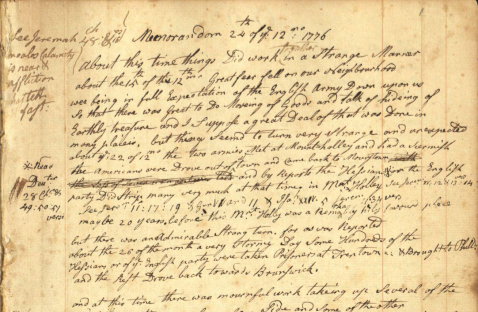 See Jeremiah
48: 8
moabs Calamity
is near
affliction
hasteth
fast.
Memorandom 24th of ye 12mo 1776
About this time things Did work in a Strange Manner
about the 15th of the 12mo Great fear fell on our Neighbourhood
wee being in full Expectation of the English Army Down upon us
So that there was Great to Do Moving of Goods and talk of hideing of
Earthly treasure and I Suppose a great Deal of that was Done in
many places, but things Seemd to turn very Strange and unexpected
about ye 22 of 12mo the two armies Met at Mountholley and had a Scirmish
the americans were Drove out of town and came back to Moorstown
and by Report the Hessians for the English
party Did Strip many very much at that time in Mt Holley
* Read
Deu ter
28 Ch.
49. 50. 51
vers
maybe 20 years before this Mt Holly was a
but there was an admirable Strong turn. for as was Reported
about the 26 of the month a very Stormy Day Some Hundreds of the
Hessians or of ye English party were taken Prisoners at Trentown & Brought to Phila
and the Rest Drove back towards Brunswick.
and at this time there was mournful work takeing up Several of the
Side and Some of the other